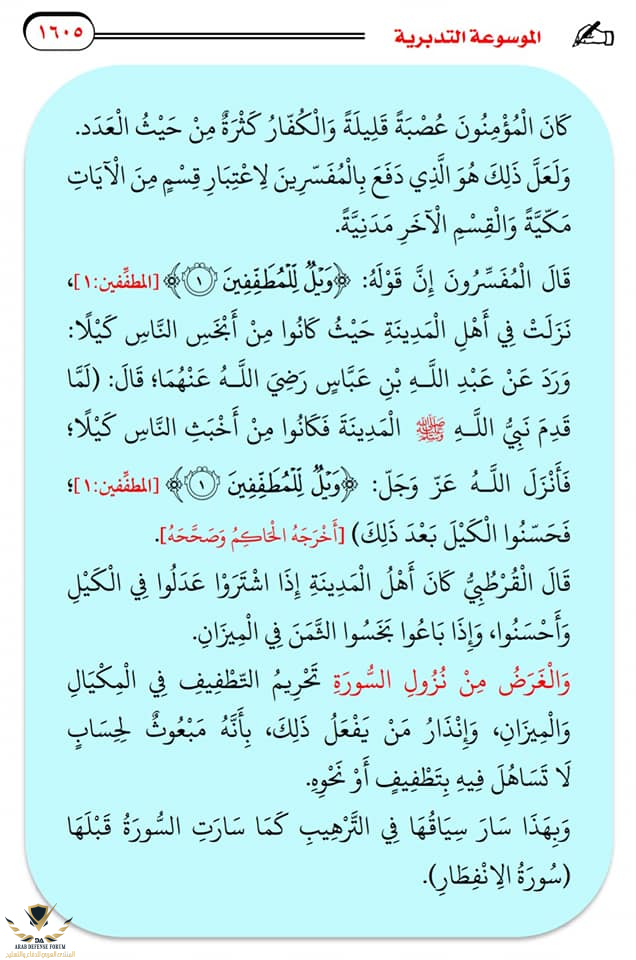 الموسوعة التدبرية
١٦٠٥
كَانَ الْمُؤْمِنُونَ عُصْبَةً قَلِيلَةً وَالْكُفّارُ كَثْرَةٌ مِنْ حَيْثُ الْعَدَد.
وَلَعَلَّ ذَلِكَ هُوَ الَّذِي دَفَعَ بِالْمُفَسّرِينَ لِاعْتِبَارِ قِسْمٍ مِنَ الْآيَاتِ
مَكّيَّةً وَالْقِسْمِ الْآخَرِ مَدَنِيَّةً.
قَالَ الْمُفَسّرُونَ إِنَّ قَوْلَهُ: ﴿وَيۡلٞ لِّلۡمُطَفِّفِينَ ١﴾ [المطفِّفين:١]،
نَزَلَتْ فِي أَهْلِ الْمَدِينَةِ حَيْثُ كَانُوا مِنْ أَبْخَسِ النَّاسِ كَيْلًا:
وَرَدَ عَنْ عَبْدِ اللَّـهِ بْنِ عَبَّاسٍ رَضِيَ اللَّـهُ عَنْهُمَا؛ قَالَ: (لَمَّا
قَدِمَ نَبِيُّ اللَّـهِ ﷺ الْمَدِينَةَ فَكَانُوا مِنْ أَخْبَثِ النَّاسِ كَيْلًا؛
فَأَنْزَلَ اللَّـهُ عَزّ وَجَلّ: ﴿وَيۡلٞ لِّلۡمُطَفِّفِينَ ١﴾ [المطفِّفين:١]؛
فَحَسّنُوا الْكَيْلَ بَعْدَ ذَلِكَ) [أَخْرَجَهُ الْحَاكِمُ وَصَحَّحَهُ].
قَالَ الْقُرْطُبِيُّ كَانَ أَهْلُ الْمَدِينَةِ إِذَا اشْتَرَوْا عَدَلُوا فِي الْكَيْلِ
وَأَحْسَنُوا، وَإِذَا بَاعُوا بَخَسُوا الثَّمَنَ فِي الْمِيزَانِ.
وَالْغَرَضُ مِنْ نُزُولِ السُّورَةِ تَحْرِيمُ التّطْفِيفِ فِي الْمِكْيَالِ
وَالْمِيزَانِ، وَإِنْذَارُ مَنْ يَفْعَلُ ذَلِكَ، بِأَنَّهُ مَبْعُوثٌ لِحِسَابٍ
لَا تَسَاهُلَ فِيهِ بِتَطْفِيفٍ أَوْ نَحْوِهِ.
وَبِهَذَا سَارَ سِيَاقُهَا فِي التَّرْهِيبِ كَمَا سَارَتِ السُّورَةُ قَبْلَهَا
(سُورَةُ الِانْفِطَارِ).
DA
ARAB DEFENSE FORUM
المنتدى العربي للدفاع والتسليح